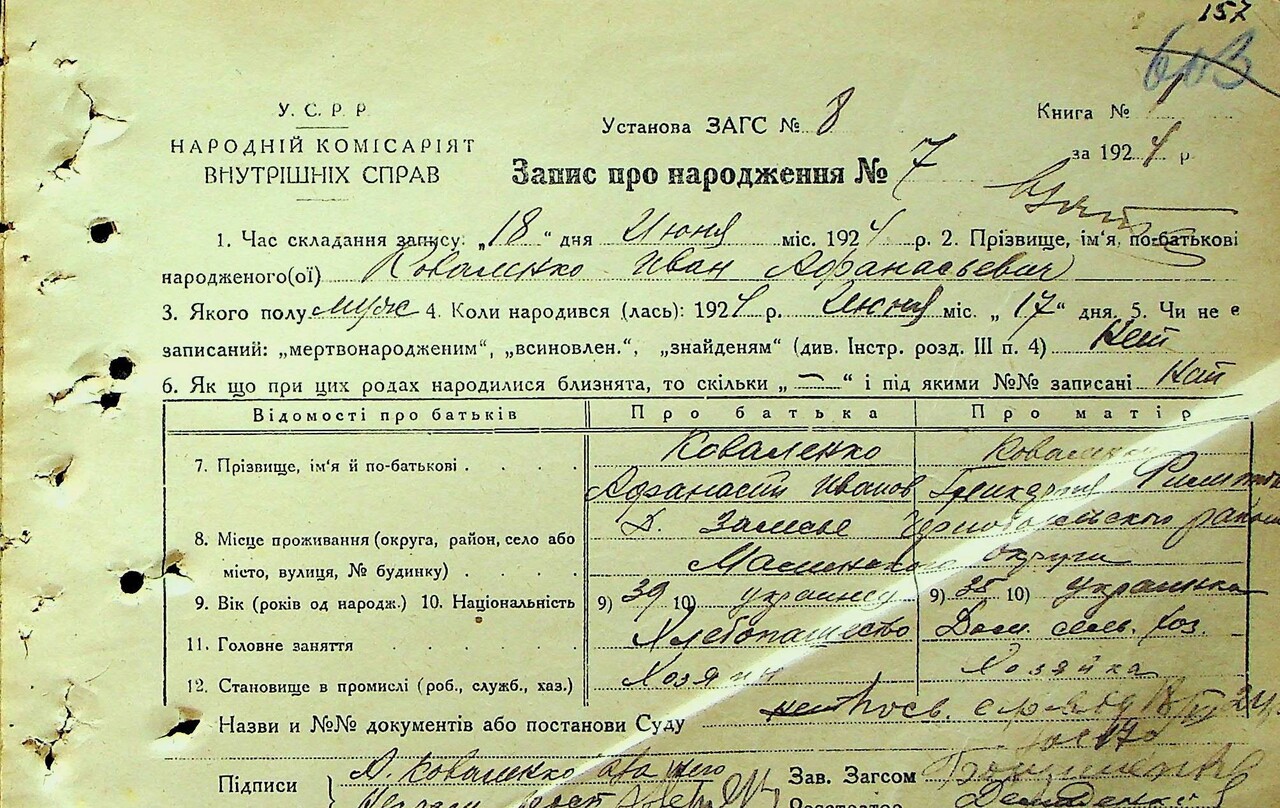 157
У. С. Р. Р.
НАРОДНІЙ КОМІСАРІЯТ
ВНУТРІШНІХ СПРАВ
Установа ЗАГС № 8
Книга № 1
за 1924 р.
Запис про народження № 7
1. Час складання запису: „18“ дня Июня міс. 1924 р. 2. Прізвище, ім'я, по-батькові
народженого(ої) Коваленко Иван Афанасьевич
3. Якого полу муж 4. Коли народився (лась): 1924 р. Июня міс. „17“ дня. 5. Чи не є
записаний: „мертвонародженим“, „всиновлен.“, „знайденям“ (див. Інстр. розд. III п. 4) Нет
6. Як що при цих родах народилися близнята, то скільки „—“ і під якими №№ записані Нет
Відомості про батьків Про батька Про матір
7. Прізвище, ім'я й по-батькові Коваленко Коваленко
Афанасий Иванов
8. Місце проживання (округа, район, село або
місто, вулиця, № будинку) Д. Залесье Чернобыльского района
округи
9. Вік (років од народж.) 10. Національність 9) 39 10) украинец 9) 35 10) украинка
11. Головне заняття Хлебопашество Дом. сель. хоз.
12. Становище в промислі (роб., служб., хаз.) Хозяин Хозяйка
Назви и №№ документів або постанови Суду
Підписи А. Коваленко а за него
Зав. Загсом